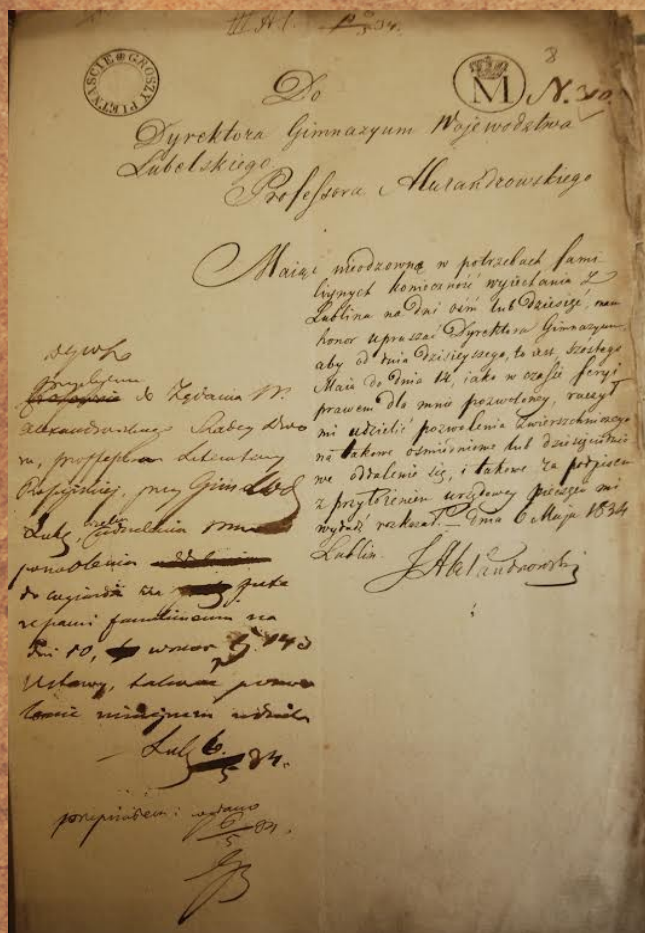 GROSZY PIETNASCIE
M
8
N. 340.
Do
Dyrektora Gimnazyum Wojewodztwa
Lubelskiego
Professora Alexandrowskiego
Maiąc nieodzowną w potrzebach fami
liynych konieczność wyiechania z
Lublina na dni ośm lub dziesięć, mam
honor upraszać Dyrektora Gimnazyum
aby od dnia dzisieyszego, to iest, szóstego
Maia do dnia 14, iako w czasie feryi
prawem dla mnie pozwoloney, raczył
mi udzielić pozwolenia zwierzchniczego
na takowe ośmiodniowe lub dziesięciodnio
we oddalenie się, i takowe za podpisem
z przyłożeniem urzędowey pieczęci mi
wydać rozkazał. — Dnia 6 Maja 1834
Lublin.
J Alexandrowski
do żądania W.
Alexandrowskiego Radcy Dwo
ru, professora Literatury
Rossyiskiej, przy Gimn
Lub, udzielenia
pozwolenia
do wyjazdu za
familinemi na
dni 10, wzior 143
Ustawy, takowe pozwo
lenie niniejszem udziela
Lub 6/5 34.
przepisałem i wydano
6/5 34.